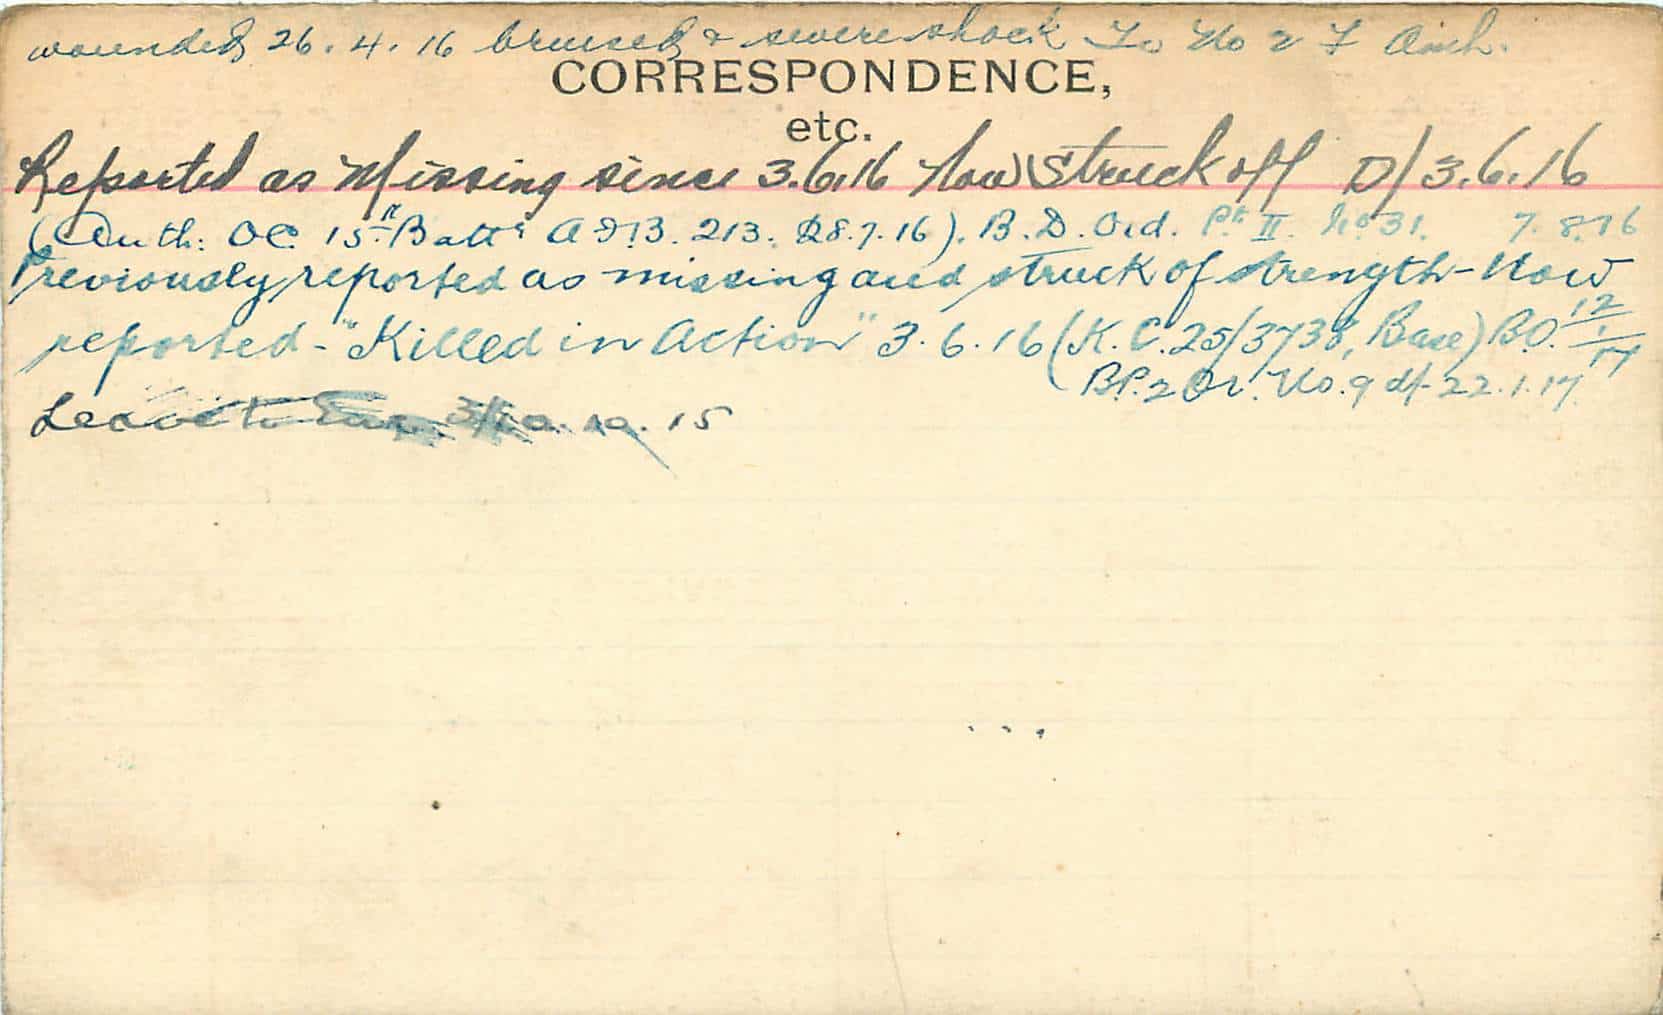 wounded 26.4.16 bruised & severe shock To No 2 F Amb.
CORRESPONDENCE,
etc.
Reported as Missing since 3.6.16 Now Struck off D/ 3.6.16
(Auth: OC 15th Battn A213. 213. 28.7.16). B.D. Ord. Pt II. No 31. 7.8.16
Previously reported as missing and struck of strength - Now
reported - "Killed in Action" 3.6.16 (K.C. 25/3738, Base) B.O. 12/1/17
BP. 2 Or. No. 9 df 22.1.17
Leave to 15